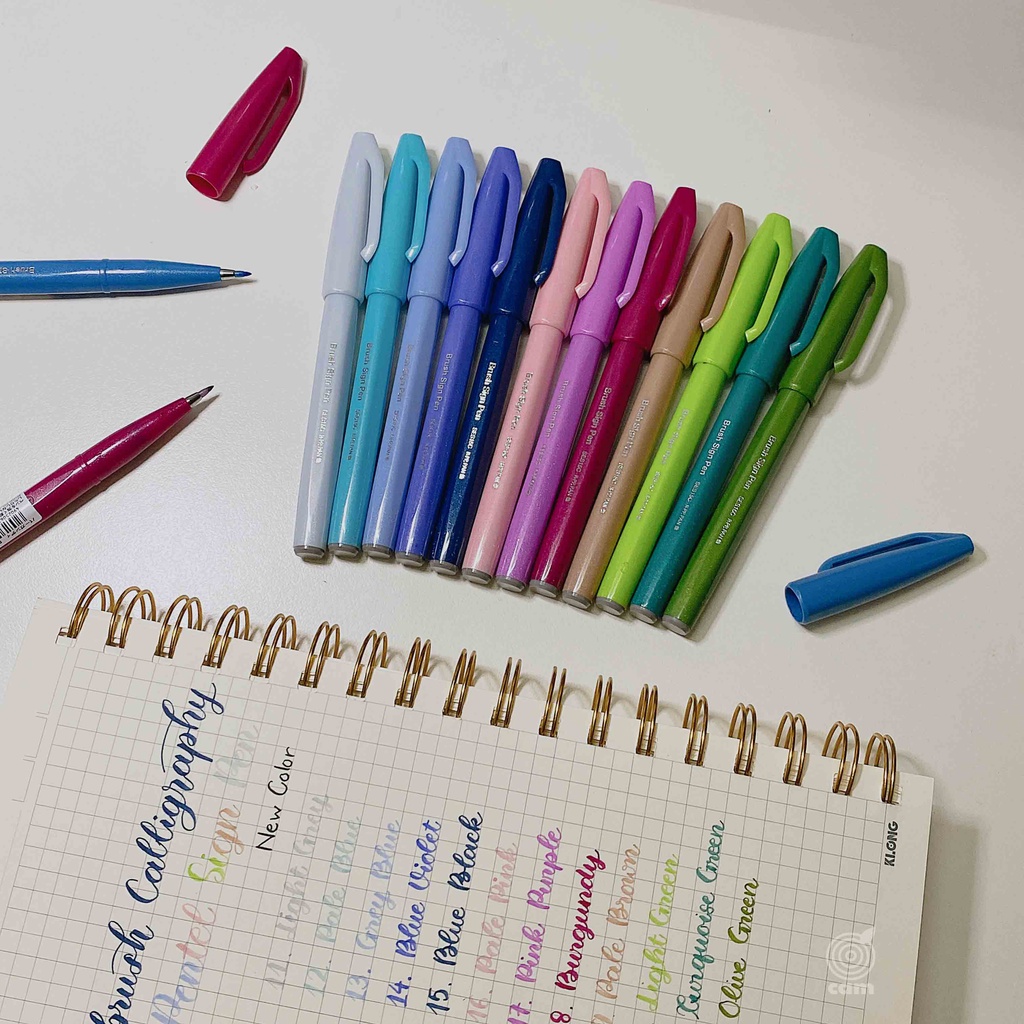 Brush Calligraphy
Pentel Sign Pen
New Color
11. Light Grey
12. Pale Blue
13. Grey Blue
14. Blue Violet
15. Blue Black
16. Pale Pink
17. Pink Purple
8. Burgundy
Pale Brown
Light Green
Turquoise Green
Olive Green
KLONG
Brush Sign Pen
Brush Sign Pen
Brush Sign Pen
Brush Sign Pen
Brush Sign Pen
Brush Sign Pen
Brush Sign Pen
Brush Sign Pen
Brush Sign Pen
Brush Sign Pen
Brush Sign Pen
Brush Sign Pen
Brush
cam